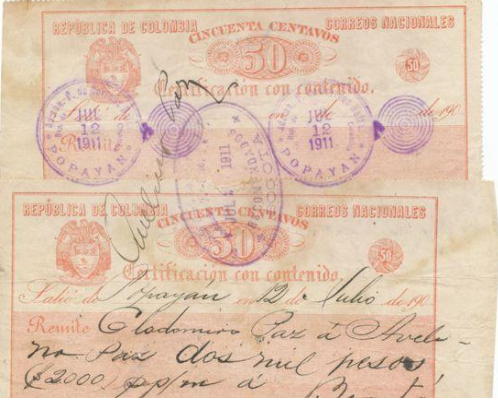 REPÚBLICA DE COLOMBIA CINCUENTA CENTAVOS CORREOS NACIONALES
50 50
Certificación con contenido.
Salió de de 190
Remite
JUL
12
1911
POPAYAN
JUL
12
1911
POPAYAN
JUL 1911
BOGOTA
REPÚBLICA DE COLOMBIA CINCUENTA CENTAVOS CORREOS NACIONALES
50 50
Certificación con contenido.
Salió de Popayán en 12 de Julio de 190
Remite Clodomiro Paz á Aveli-
no Paz dos mil pesos
($2000) pp/m á Bogotá